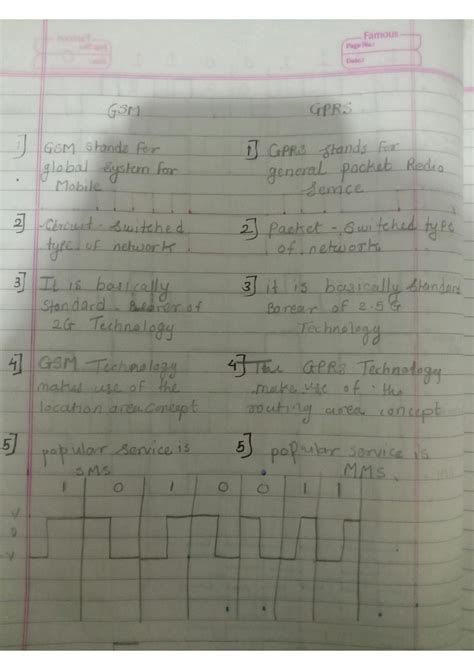 Famous
Page No.:
Date:
GSM GPRS
1] GSM stands for
global system for
Mobile
1] GPRS stands for
general packet Redio
Semce
2] Circuit - Switched
type of network.
2] Packet - Switched type
of network.
3] It is basically
Standard - Bearer of
2G Technology
3] it is basically Standard
Barear of 2.5 G
Technology
4] GSM Technology
makes use of the
location area concept
4] The GPRS Technology
make use of the
routing area concept
5] popular service is
SMS
5] popular service is
MMS.
1 0 1 0 0 1 1
V
0
-V